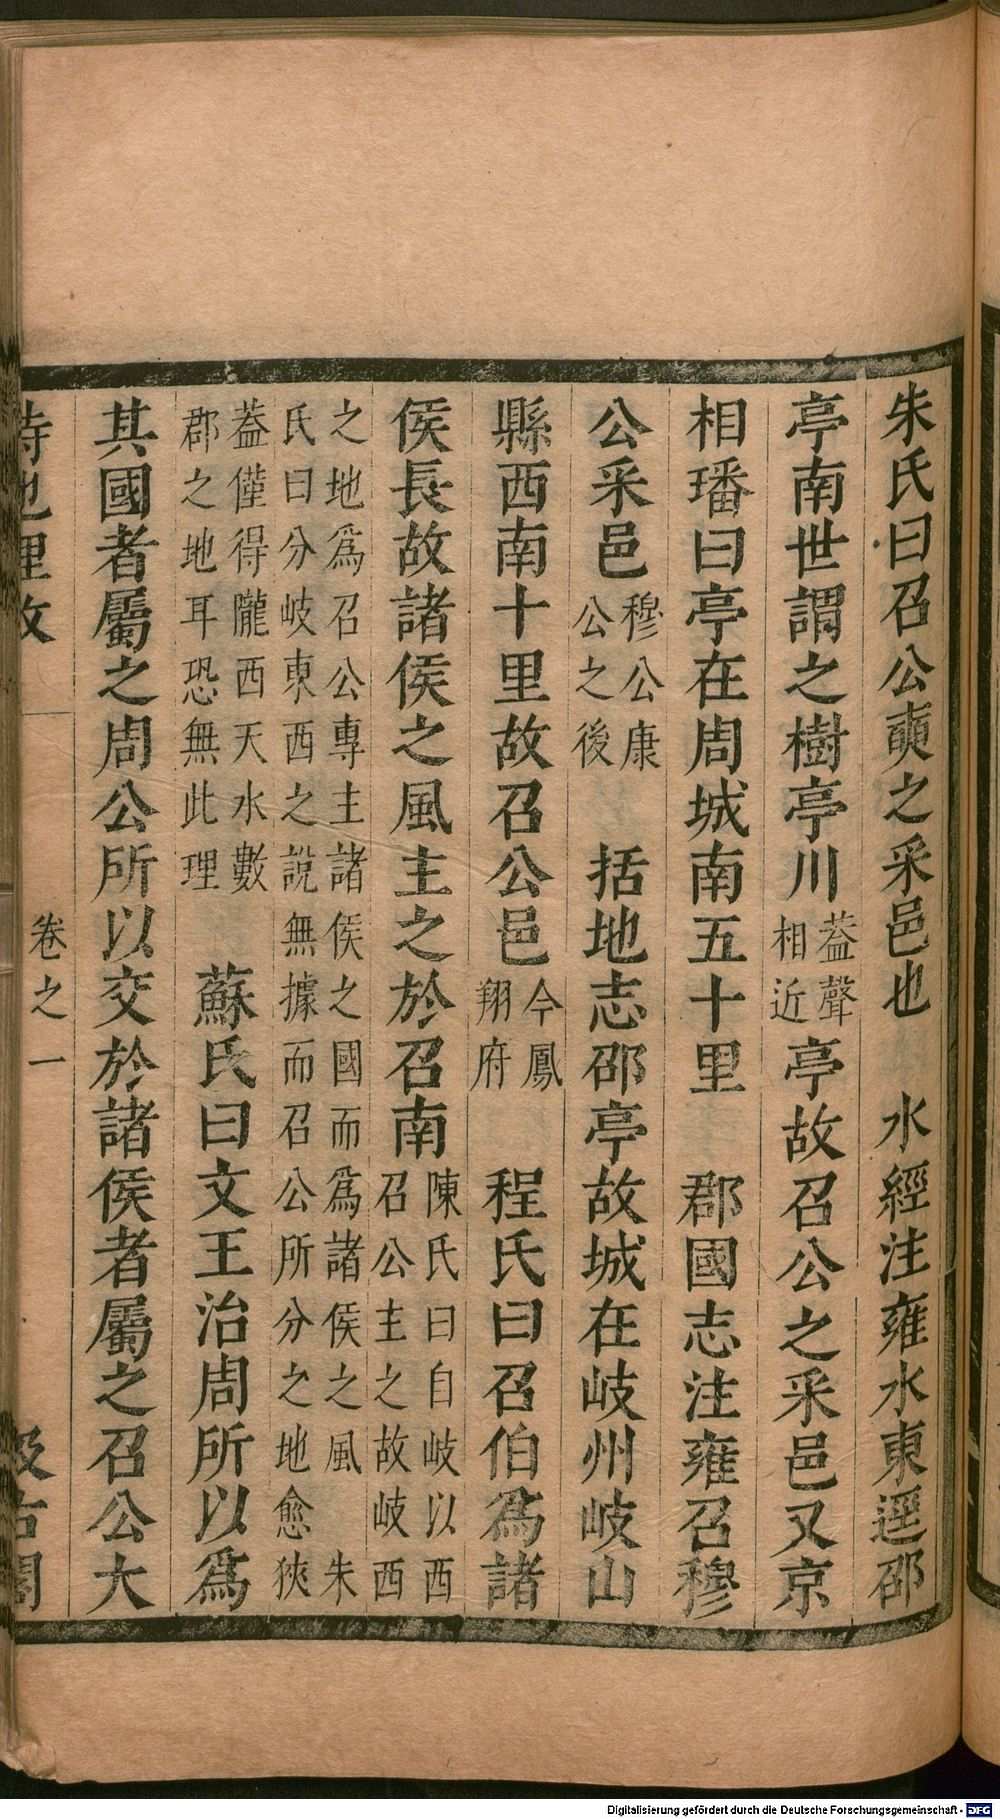 朱氏曰召公奭之采邑也　水經注雍水東逕邵
亭南世謂之樹亭川蓋聲相近亭故召公之采邑又京
相璠曰亭在周城南五十里　郡國志注雍召穆
公采邑穆公康公之後　括地志邵亭故城在岐州岐山
縣西南十里故召公邑今鳳翔府　程氏曰召伯爲諸
侯長故諸侯之風主之於召南陳氏曰自岐以西召公主之故岐西
之地爲召公專主諸侯之國而爲諸侯之風　朱氏曰分岐東西之說無據而召公所分之地愈狹
蓋僅得隴西天水數郡之地耳恐無此理　蘇氏曰文王治周所以爲
其國者屬之周公所以交於諸侯者屬之召公大
詩地理攷　卷之一　汲古閣
Digitalisierung gefördert durch die Deutsche Forschungsgemeinschaft - DFG